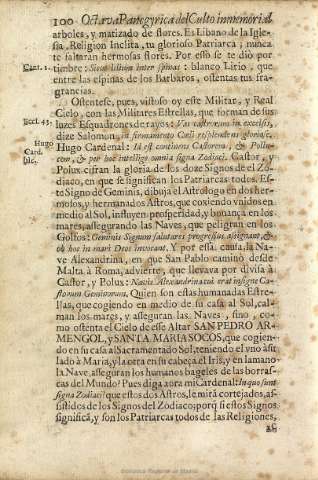 100 Octava Panegyrica del Culto inmemorial
arboles, y matizado de flores. Es Libano de la Igle-
sia, Religion Inclita, tu glorioso Patriarca; nunca
te faltaràn hermosas flores. Por esso se te diò por
Cant. 2. timbre: Sicut lilium inter spinas: blanco Lirio, que
entre las espinas de los Barbaros, ostentas tus fra-
grancias.
Ostentese, pues, vistoso oy este Militar, y Real
Cielo, con las Militares Estrellas, que forman de sus
Eccl. 43. luzes Esquadrones de rayos: Vas castrorum in excelsis,
dize Salomon, in firmamento Cæli resplendens gloriose,
Hugo Card. hîc. Hugo Cardenal: Id est continens Castorem, & Pollu-
cem, & per hoc intelligo omnia signa Zodiaci. Castor, y
Polux cifran la gloria de los doze Signos de el Zo-
diaco, en que se significan los Patriarcas todos. Es-
te Signo de Geminis, dibuja el Astrologo en dos her-
mosos, y hermanados Astros, que coxiendo vnidos en
medio al Sol, influyen prosperidad, y bonança en los
mares, assegurando las Naves, que peligran en los
Golfos: Geminis Signum salutares progressus assignant, &
ob hoc in mari Deos invocant. Y por essa causa, la Na-
ve Alexandrina, en que San Pablo caminò desde
Malta à Roma, advierte, que llevava por divisa à
Castor, y Polux: Navis Alexandrina cui erat insigne Ca-
storum Geminorum. Quien son estas humanadas Estre-
llas, que cogiendo en medio de su casa al Sol, cal-
man los mares, y asseguran las Naves, sino, co-
mo ostenta el Cielo de este Altar SAN PEDRO AR-
MENGOL, y SANTA MARIA SOCOS, que cogien-
do en su casa al Sacramentado Sol, teniendo el vno à su
lado à Maria, y la otra en su cabeça el Iris, y en la mano
la Nave, asseguran los humanos bageles de las borras-
cas del Mundo? Pues diga aora mi Cardenal: In quo sunt
signa Zodiaci? que estos dos Astros, le mirà cortejados, as-
sistidos de los Signos del Zodiaco; porq̃ si estos Signos
significã, y son los Patriarcas todos de las Religiones,
Biblioteca Regional de Madrid